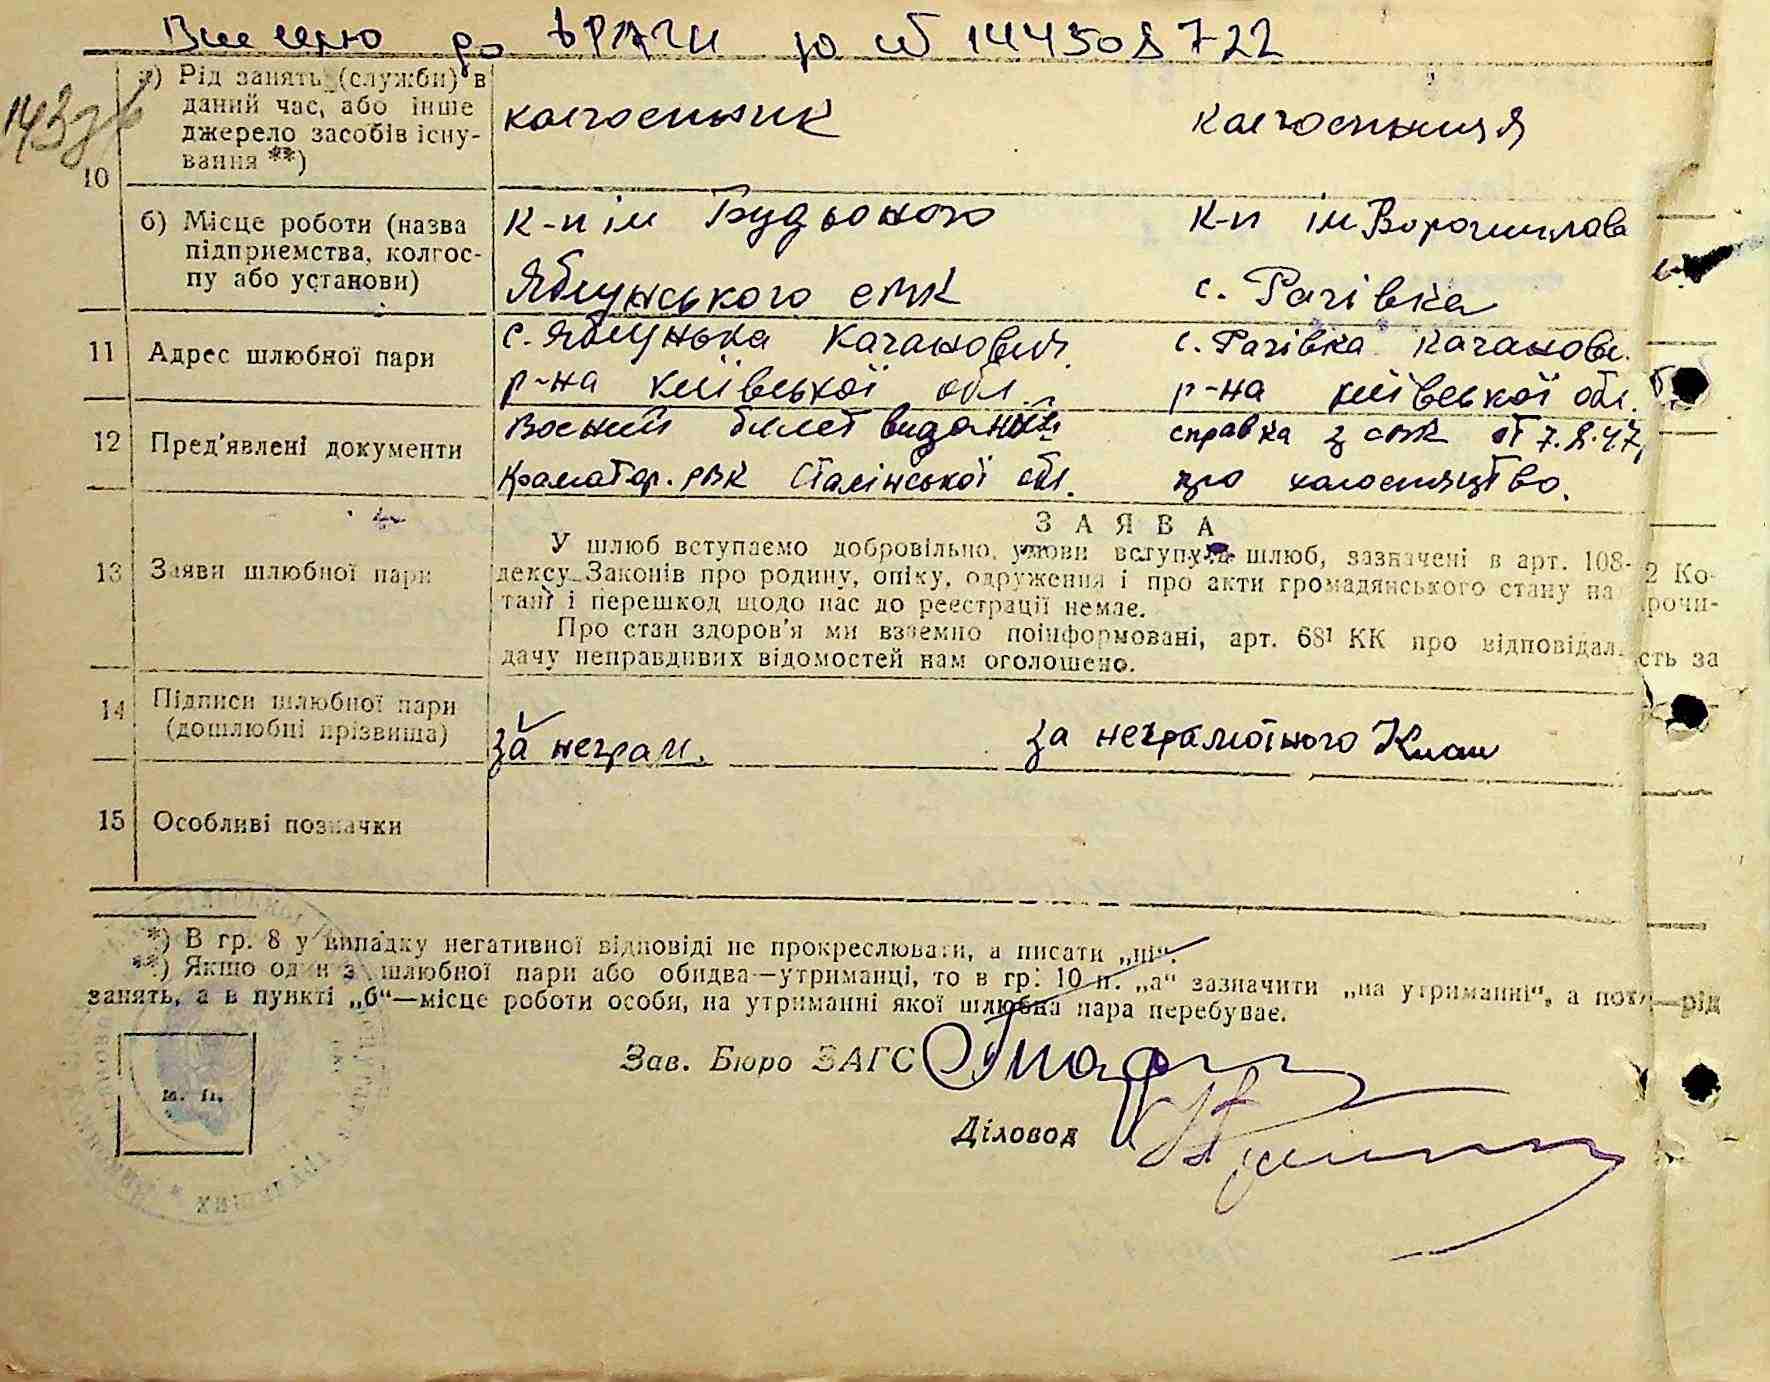 Внесено до ДРАЦС за № 144508722
143зв
10
а) Рід занять (служби) в
даний час, або інше
джерело засобів існу-
вання **)
колгоспник
колгоспниця
б) Місце роботи (назва
підприємства, колгос-
пу або установи)
к-п ім Будьоного
Яблунського с/вк
к-п ім Ворошилова
с. Рагівка
11
Адрес шлюбної пари
с. Яблунька Каганович.
р-на київської обл.
с. Рагівка Каганови.
р-на київської обл.
12
Пред'явлені документи
Воєний билет виданий
Краматор. РВК Сталінської обл.
справка з с/вк от 7.8.47,
про холостяцтво.
13
Заяви шлюбної пари
ЗАЯВА
У шлюб вступаємо добровільно, умови вступу в шлюб, зазначені в арт. 108-2 Ко-
дексу Законів про родину, опіку, одруження і про акти громадянського стану на прочи-
тані і перешкод щодо нас до реєстрації немає.
Про стан здоров'я ми взаємно поінформовані, арт. 68¹ КК про відповідальність за
дачу неправдивих відомостей нам оголошено.
14
Підписи шлюбної пари
(дошлюбні прізвища)
за неграм.
за неграмотного
15
Особливі позначки
*) В гр. 8 у випадку негативної відповіді не прокреслювати, а писати „ні“.
**) Якщо один з шлюбної пари або обидва—утриманці, то в гр. 10 п. „а“ зазначити „на утриманні“, а потім—рід
занять, а в пункті „б“—місце роботи особи, на утриманні якої шлюбна пара перебуває.
Зав. Бюро ЗАГС
м. п.
Діловод